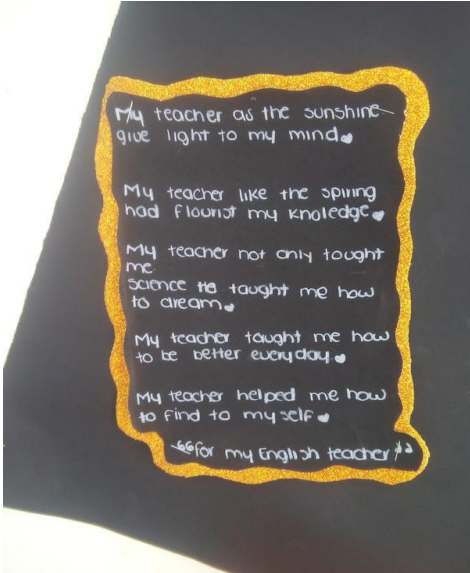 My teacher as the sunshine
give light to my mind
My teacher like the spiring
had flourist my knoledge
My teacher not only tought
me
science he taught me how
to dream
My teacher taught me how
to be better everyday
My teacher helped me how
to find to my self
“for my English teacher”